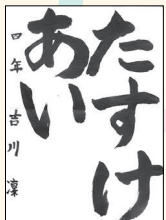 たすけ
あい
四年 吉川 凜